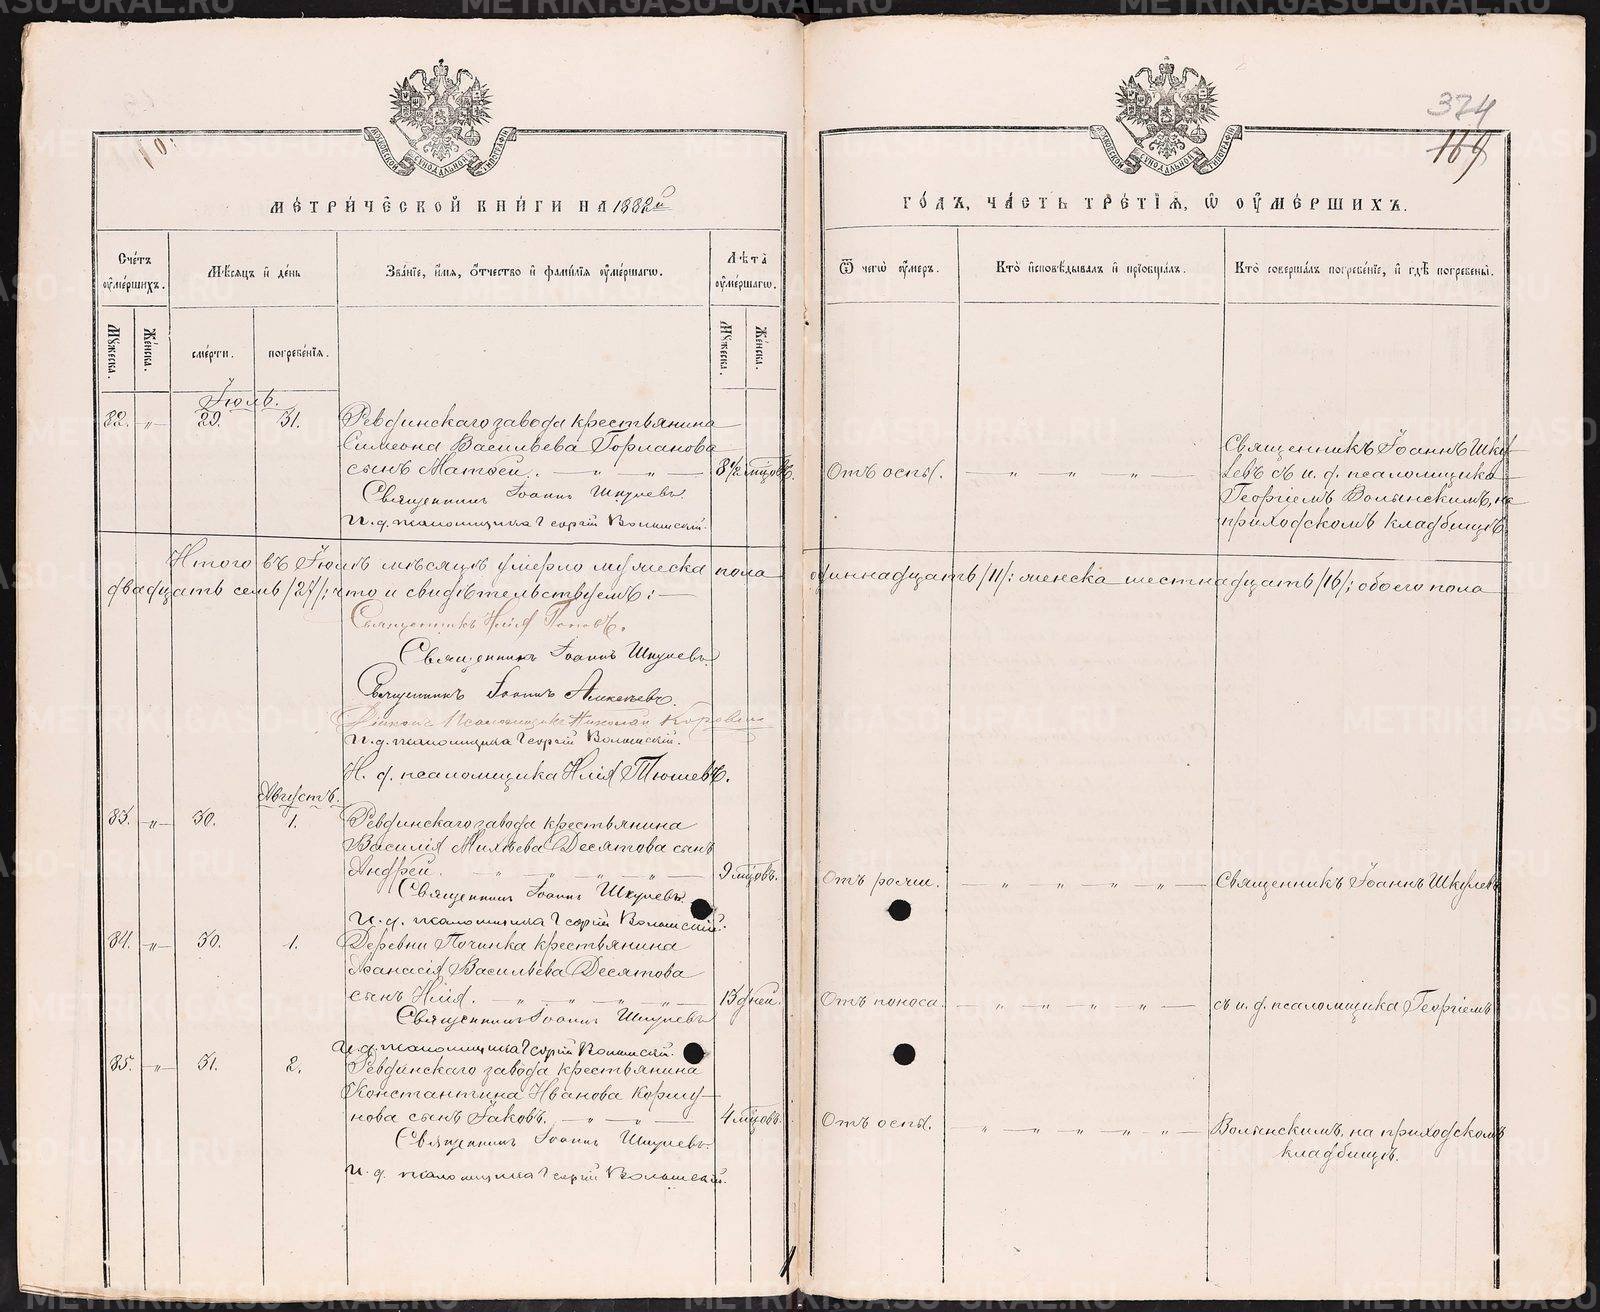 374
169
МЕТРИЧЕСКОЙ КНИГИ НА 1882й
ГОДЪ, ЧАСТЬ ТРЕТІѦ, Ѿ ОУМЕРШИХЪ.
МОСКОВСКОЙ СѴНОДАЛЬНОЙ ТИПОГРАФІИ
Счетъ оумершихъ.
Мѣсяцъ и день
Званіе, имя, отчество и фамилія оумершагω.
Лѣта оумершагω.
Ѿ чегω оумеръ.
Кто исповѣдывалъ и пріобщалъ.
Кто совершалъ погребеніе, и гдѣ погребены.
Мужеска.
Женска.
смерти.
погребенія.
Мужеска.
Женска.
Іюль.
82. „ 29. 31. Ревдинскаго завода крестьянина
Симеона Васильева Горланова
сынъ Матѳей. 8½ мцовъ. Отъ оспы.
Священникъ Іоаннъ Шкулевъ съ и. д. псаломщика Георгіемъ Волынскимъ, на приходскомъ кладбищѣ.
Священникъ Іоаннъ Шкулевъ
И. д. псаломщика Георгій Волынскій.
Итого въ Іюлѣ мѣсяцѣ умерло мужеска пола одиннадцать /11/: женска шестнадцать /16/; обоего пола
двадцать семь /27/; что и свидѣтельствуемъ:
Священникъ Илія Поповъ.
Священникъ Іоаннъ Шкулевъ
Священникъ Іоаннъ
Діаконъ Псаломщикъ Николай
И. д. псаломщика Георгій Волынскій.
И. д. псаломщика Илія Тюшевъ.
Августъ.
83. „ 30. 1. Ревдинскаго завода крестьянина
Василія Михѣева Десятова сынъ
Андрей. 9 мцовъ. Отъ рожи. Священникъ Іоаннъ Шкулевъ
Священникъ Іоаннъ Шкулевъ
И. д. псаломщика Георгій Волынскій.
84. „ 30. 1. Деревни Починка крестьянина
Аѳанасія Васильева Десятова
сынъ Илія. 13 дней. Отъ поноса. съ и. д. псаломщика Георгіемъ
Священникъ Іоаннъ Шкулевъ
И. д. псаломщика Георгій Волынскій.
85. „ 31. 2. Ревдинскаго завода крестьянина
Константина Иванова Коршу-
нова сынъ Іаковъ. 4 мцовъ. Отъ оспы. Волынскимъ, на приходскомъ
кладбищѣ.
Священникъ Іоаннъ Шкулевъ
И. д. псаломщика Георгій Волынскій.
METRIKI.GASO-URAL.RU